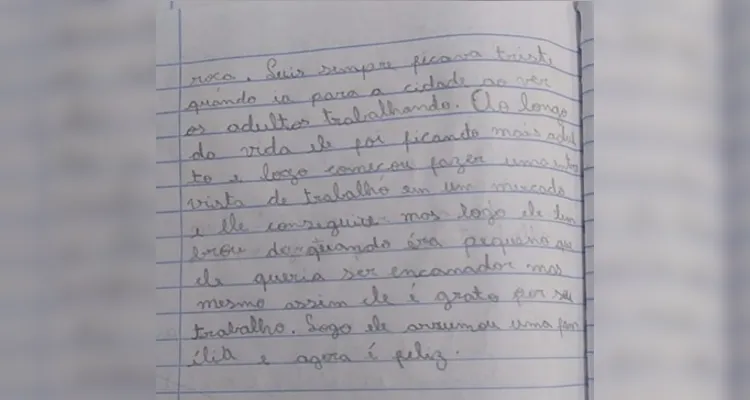 roca. Luis sempre ficava triste
quando ia para a cidade ao ver
os adultos trabalhando. Ao longo
da vida ele foi ficando mais adul
to e logo começou fazer uma en
vista de trabalho em um mercado
e ele conseguiu mas logo ele lem
brou de quando éra pequano que
ele queria ser encanador mas
mesmo assim ele é grato por seu
trabalho. Logo ele arrumou uma fam
ília e agora é feliz.